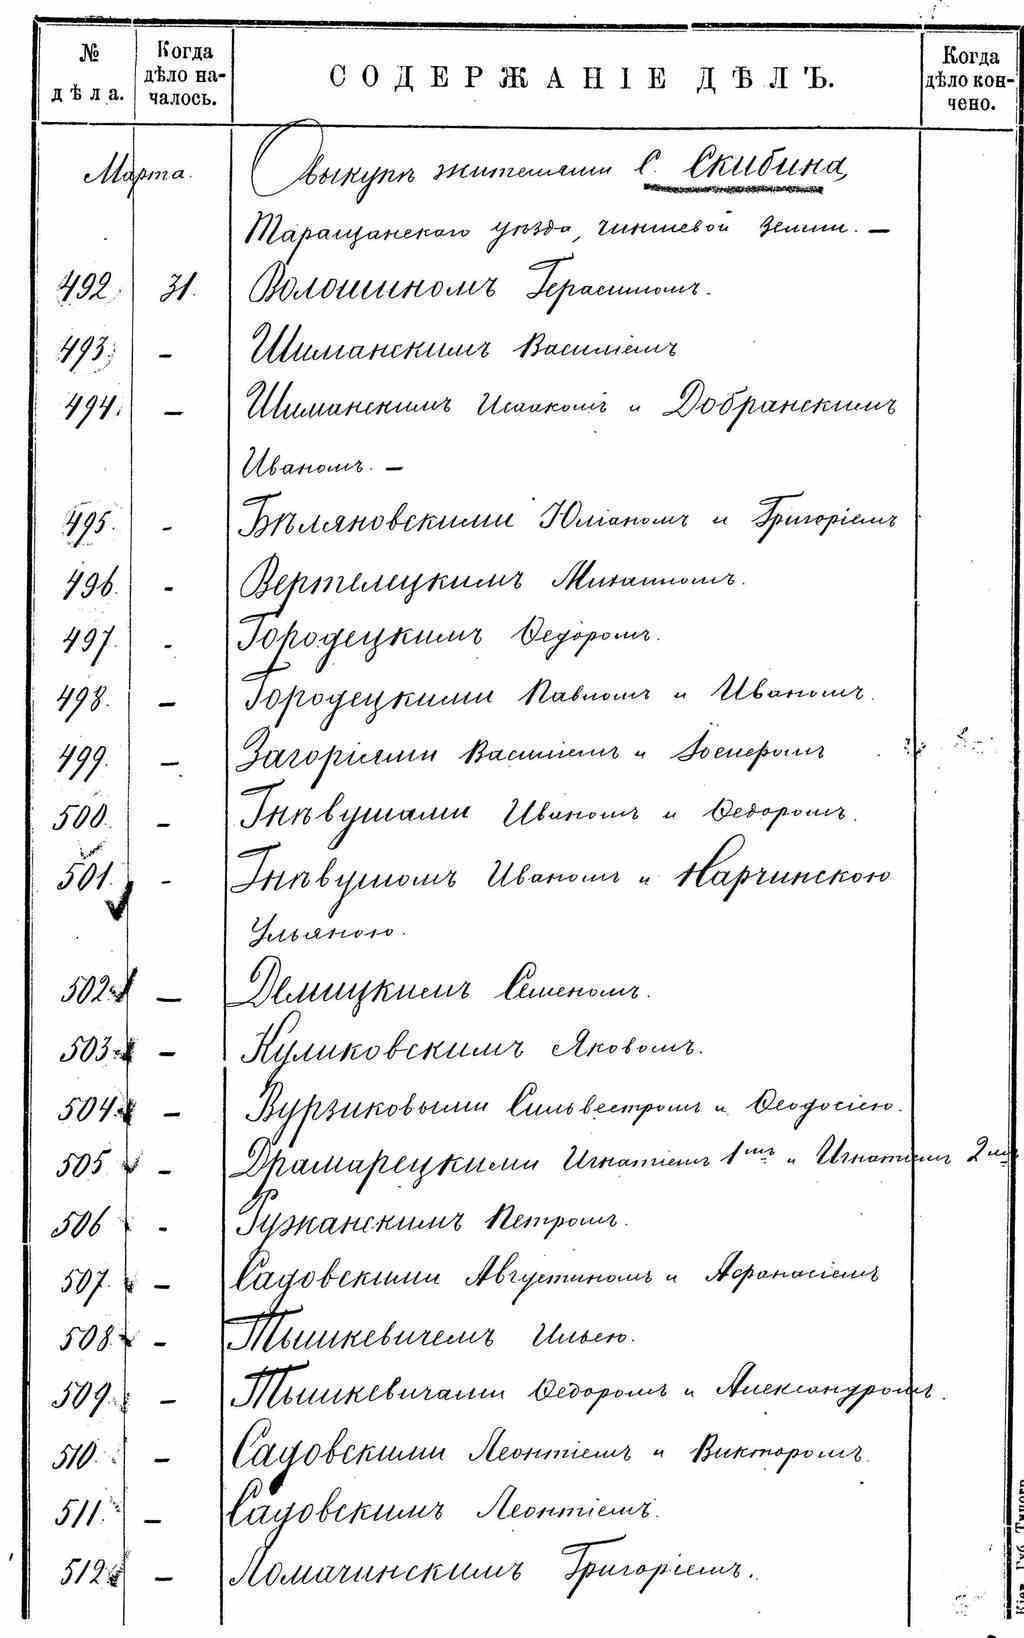 № дѣла. Когда дѣло началось. СОДЕРЖАНІЕ ДѢЛЪ. Когда дѣло кончено.
Марта. О выкупѣ жителями С. Скибина,
Таращанскаго уѣзда, чиншевой земли. —
492. 31. Волошиномъ Герасимомъ.
493. — Шиманскимъ Василіемъ
494. — Шиманскимъ Исаакомъ и Добранскимъ
Иваномъ. —
495. - Бѣляновскими Юліаномъ и Григоріемъ
496. - Вертелецкимъ Михаиломъ.
497. - Городецкимъ Ѳедоромъ.
498. — Городецкими Павломъ и Иваномъ.
499. — Загоріями Василіемъ и Іосифомъ
500. — Гнѣвушами Иваномъ и Ѳедоромъ.
501. - Гнѣвушомъ Иваномъ и Нарчинскою
Ульяною.
502. — Демицкимъ Семеномъ.
503. — Куликовскимъ Яковомъ.
504. — Вурзиковыми Сильвестромъ и Ѳеодосіею.
505. — Драмарецкими Игнатіемъ 1мъ и Игнатіемъ 2мъ
506 - Ружанскимъ Петромъ.
507. — Садовскими Августиномъ и Афанасіемъ
508. — Тышкевичемъ Ильею.
509. — Тышкевичами Ѳедоромъ и Александромъ.
510. — Садовскими Леонтіемъ и Викторомъ.
511. — Садовскимъ Леонтіемъ.
512. — Ломачинскимъ Григоріемъ.
Кіев. Губ. Типогр.